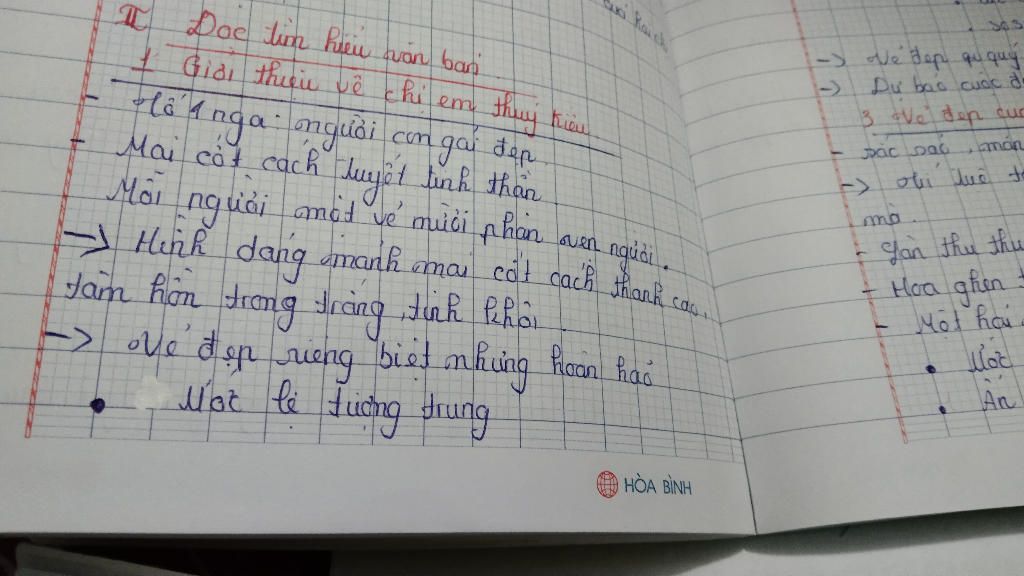 II Đọc tìm hiểu văn bản
1 Giới thiệu về chị em thuý kiều
- Tố 1 nga: người con gái đẹp.
- Mai cốt cách tuyết tinh thần
Mỗi người một vẻ mười phân vẹn người.
-> Hình dáng mảnh mai cốt cách thanh cao,
tâm hồn trong trắng, tinh khôi
-> Vẻ đẹp riêng biệt nhưng hoàn hảo
• Ước lệ tượng trưng
HÒA BÌNH
-> Vẻ đẹp
-> Dự báo cuộc
3 Vẻ đẹp
- sắc sảo, mặn
->
mà.
- làn thu
- Hoa ghen
- Một hai
• Ước
• Ẩn